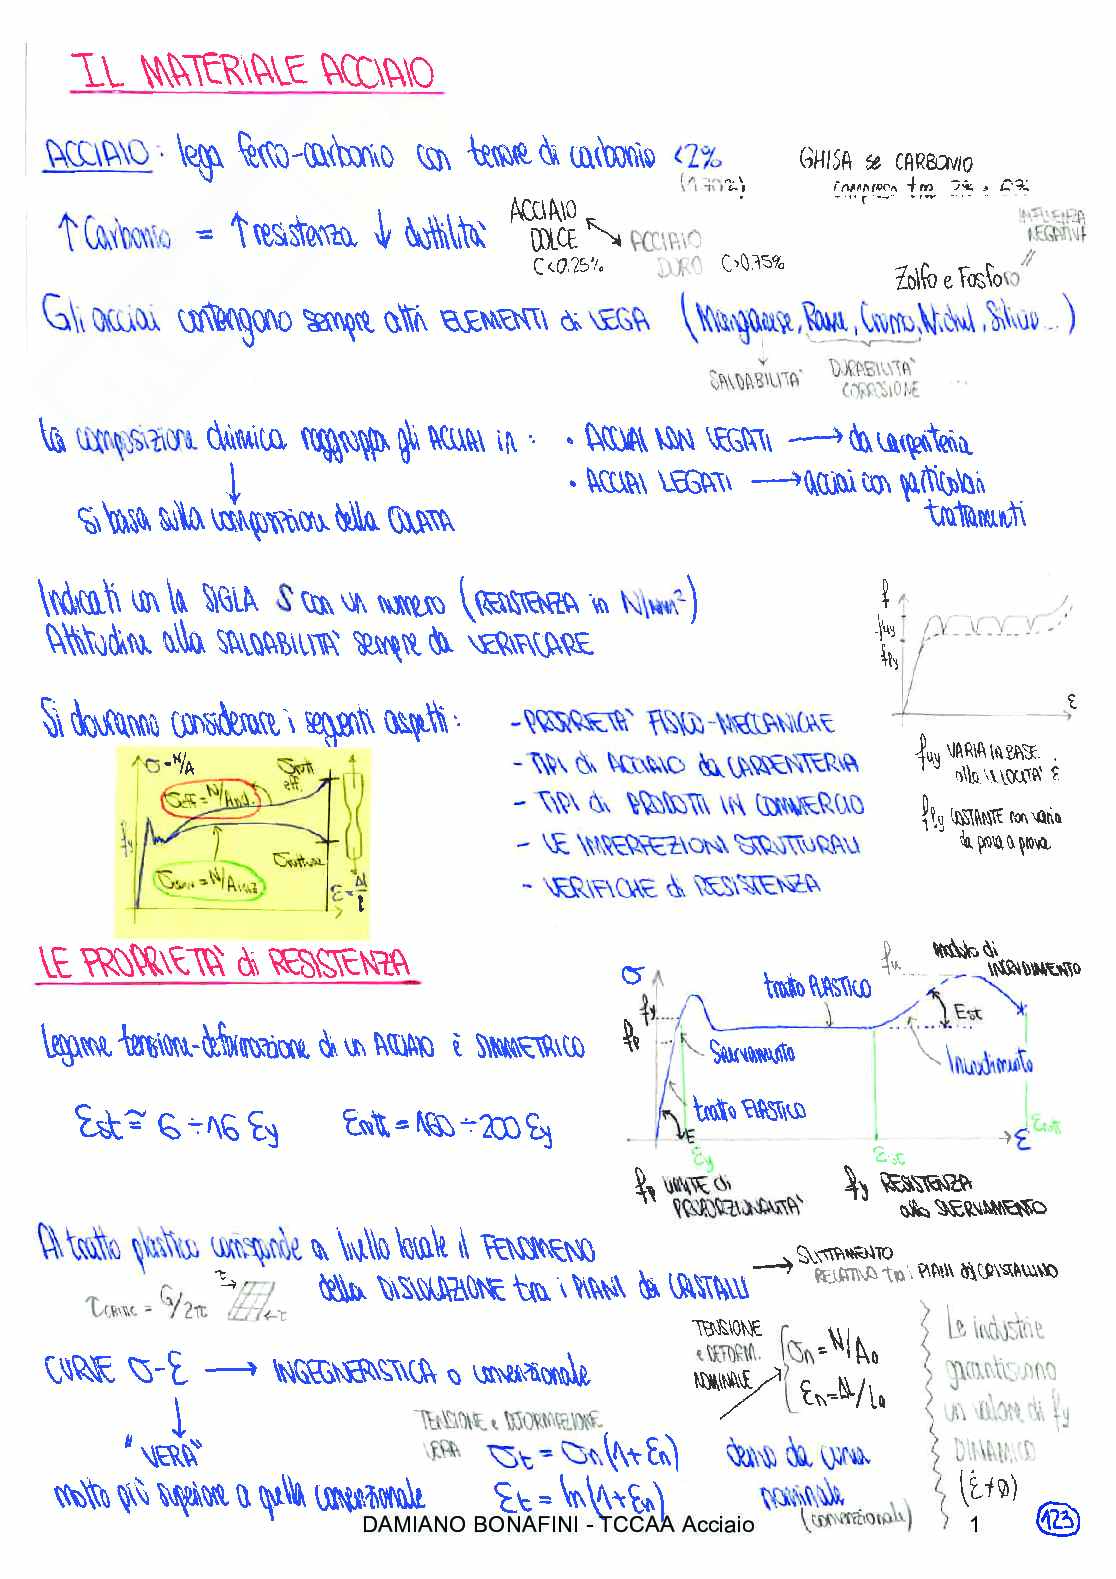 IL MATERIALE ACCIAIO
ACCIAIO: lega ferro-carbonio con tenore di carbonio <2%
(1.70%)
GHISA se CARBONIO
compreso tra 2% e 6%
↑ Carbonio = ↑ resistenza ↓ duttilità
ACCIAIO
DOLCE
C<0.25%
ACCIAIO
DURO C>0.75%
INFLUENZA
NEGATIVA
Zolfo e Fosforo
Gli acciai contengono sempre altri ELEMENTI di LEGA (Manganese, Rame, Cromo, Nichel, Silicio ...)
SALDABILITA'
DURABILITA'
CORROSIONE
...
La composizione chimica raggruppa gli ACCIAI in :
• ACCIAI NON LEGATI → da carpenteria
• ACCIAI LEGATI → acciai con particolari
trattamenti
Si basa sulla composizione della COLATA
Indicati con la SIGLA S con un numero (RESISTENZA in N/mm²)
Attitudine alla SALDABILITA' sempre da VERIFICARE
f
fuy
fly
ε
fuy VARIA IN BASE
alla VELOCITA' ε̇
fly COSTANTE non varia
da prova a prova
Si dovranno considerare i seguenti aspetti :
- PROPRIETA' FISICO-MECCANICHE
- TIPI di ACCIAIO da CARPENTERIA
- TIPI di PRODOTTI IN COMMERCIO
- LE IMPERFEZIONI STRUTTURALI
- VERIFICHE di RESISTENZA
σ=N/A
fy
ε=Δl/l
LE PROPRIETA' di RESISTENZA
Legame tensione-deformazione di un ACCIAIO è SIMMETRICO
εst ≃ 6 ÷ 16 εy
εrott = 160 ÷ 200 εy
σ
fy
fp
fu
modulo di
INCRUDIMENTO
tratto PLASTICO
Est
Snervamento
Incrudimento
tratto ELASTICO
E
εy
εst
εrott
ε
fp LIMITE di
PROPORZIONALITA'
fy RESISTENZA
allo SNERVAMENTO
Al tratto plastico corrisponde a livello locale il FENOMENO
della DISLOCAZIONE tra i PIANI dei CRISTALLI
→ SLITTAMENTO
RELATIVO tra i PIANI del CRISTALLINO
= G/2π
τ
τ
CURVE σ-ε → INGEGNERISTICA o convenzionale
TENSIONE
e DEFORM.
NOMINALE
σn = N/A0
εn = Δl/l0
"VERA"
molto più superiore a quella convenzionale
TENSIONE e DEFORMAZIONE
VERA
σt = σn(1+εn)
εt = ln(1+εn)
da curva
nominale
(convenzionale)
Le industrie
garantiscono
un valore di fy
DINAMICO
(ε̇≠0)
DAMIANO BONAFINI - TCCAA Acciaio
1
123